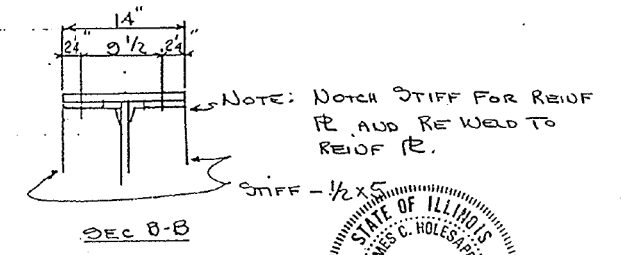 14"
2¼" 9 1/2 2¼"
NOTE: NOTCH STIFF FOR REINF
PL AND RE WELD TO
REINF PL.
STIFF - 1/2 X 5
SEC B-B
STATE OF ILLINOIS
JAMES C. HOLESAPP